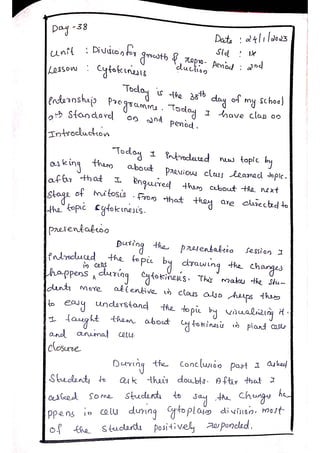 Day - 38
Date : 24/1/2023
Unit : Division for growth & repro-
duction
Std : IX
Period : 2nd
Lesson : Cytokinesis
Today is the 38th day of my school
Internship programme. Today I have class on
9th Standard on 2nd period.
Introduction
Today I Introduced new topic by
asking them about previous class learned topic.
after that I Enquired them about the next
stage of mitosis. From that they are directed to
the topic Cytokinesis.
presentation
During the presentation session I
Introduced the topic by drawing the changes
happens in cell during Cytokinesis. This makes the stu-
dents more attentive in class also helps them
to easy understand the topic by visualizing it.
I taught them about cytokinesis in plant cells
and animal cells
closure
During the conclusion part I asked
Students to ask their doubts. After that I
asked some students to say the change ha
ppens in cell during Cytoplasm division. most
of the students positively responded.